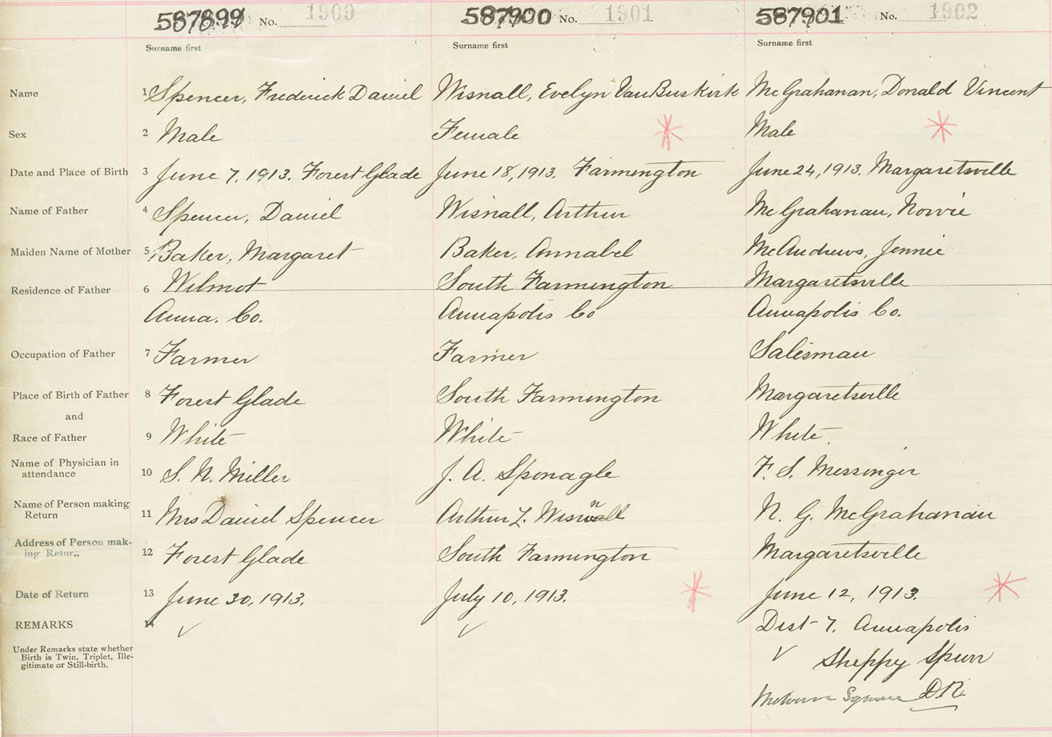 587899 No. 1900 587900 No. 1901 587901 No. 1902
Surname first Surname first Surname first
Name 1 Spencer, Frederick Daniel Wisnall, Evelyn VanBuskirk McGrahanan, Donald Vincent
Sex 2 Male Female Male
Date and Place of Birth 3 June 7, 1913. Forest Glade June 18, 1913. Farmington June 24, 1913. Margaretsville
Name of Father 4 Spencer, Daniel Wisnall, Arthur McGrahanan, Norvie
Maiden Name of Mother 5 Baker, Margaret Baker, Annabel McAndrews, Jennie
Residence of Father 6 Wilmot South Farmington Margaretsville
Anna. Co. Annapolis Co Annapolis Co.
Occupation of Father 7 Farmer Farmer Salesman
Place of Birth of Father 8 Forest Glade South Farmington Margaretsville
and
Race of Father 9 White White White.
Name of Physician in
attendance 10 S. N. Miller J. A. Sponagle F. S. Messinger
Name of Person making
Return 11 Mrs Daniel Spencer Arthur L. Wisnall N. G. McGrahanan
Address of Person mak-
ing Return 12 Forest Glade South Farmington Margaretsville
Date of Return 13 June 30, 1913. July 10, 1913. June 12, 1913.
REMARKS 14 Dist 7. Annapolis
Under Remarks state whether
Birth is Twin, Triplet, Ille-
gitimate or Still-birth.
Sheppy Spurr
Square D.R.